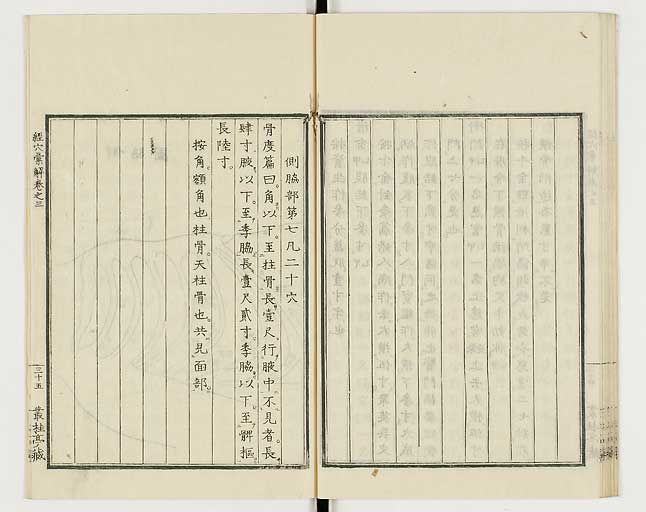 側脇部第七凡二十穴
骨度篇曰角以下至柱骨長壹尺行腋中不見者長
肆寸腋以下至季脇長壹尺貳寸季脇以下至髀樞
長陸寸
按角額角也柱骨天柱骨也共見面部
經穴彙解卷之三
三十五
叢桂亭藏